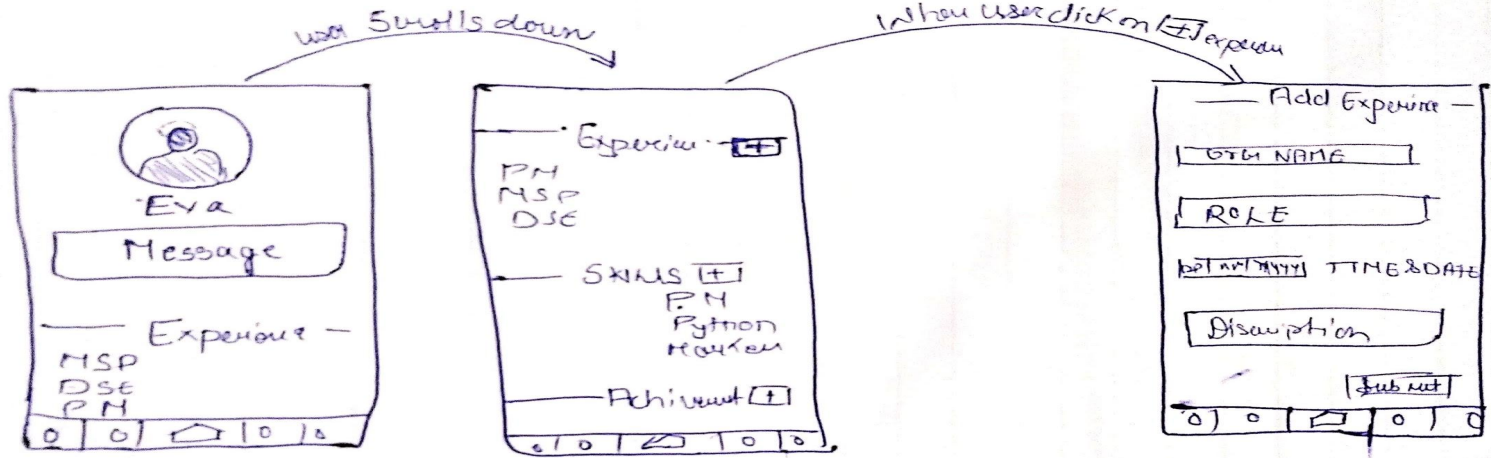 user Scrolls down
When user click on [+] experien
Eva
Message
Experience
MSP
DSE
PM
Experien [+]
PM
MSP
DSE
Skills [+]
P.M
Python
Achivment [+]
Add Experince
ORG NAME
ROLE
DD/MM/YYYY TIME & DATE
Discription
Submit